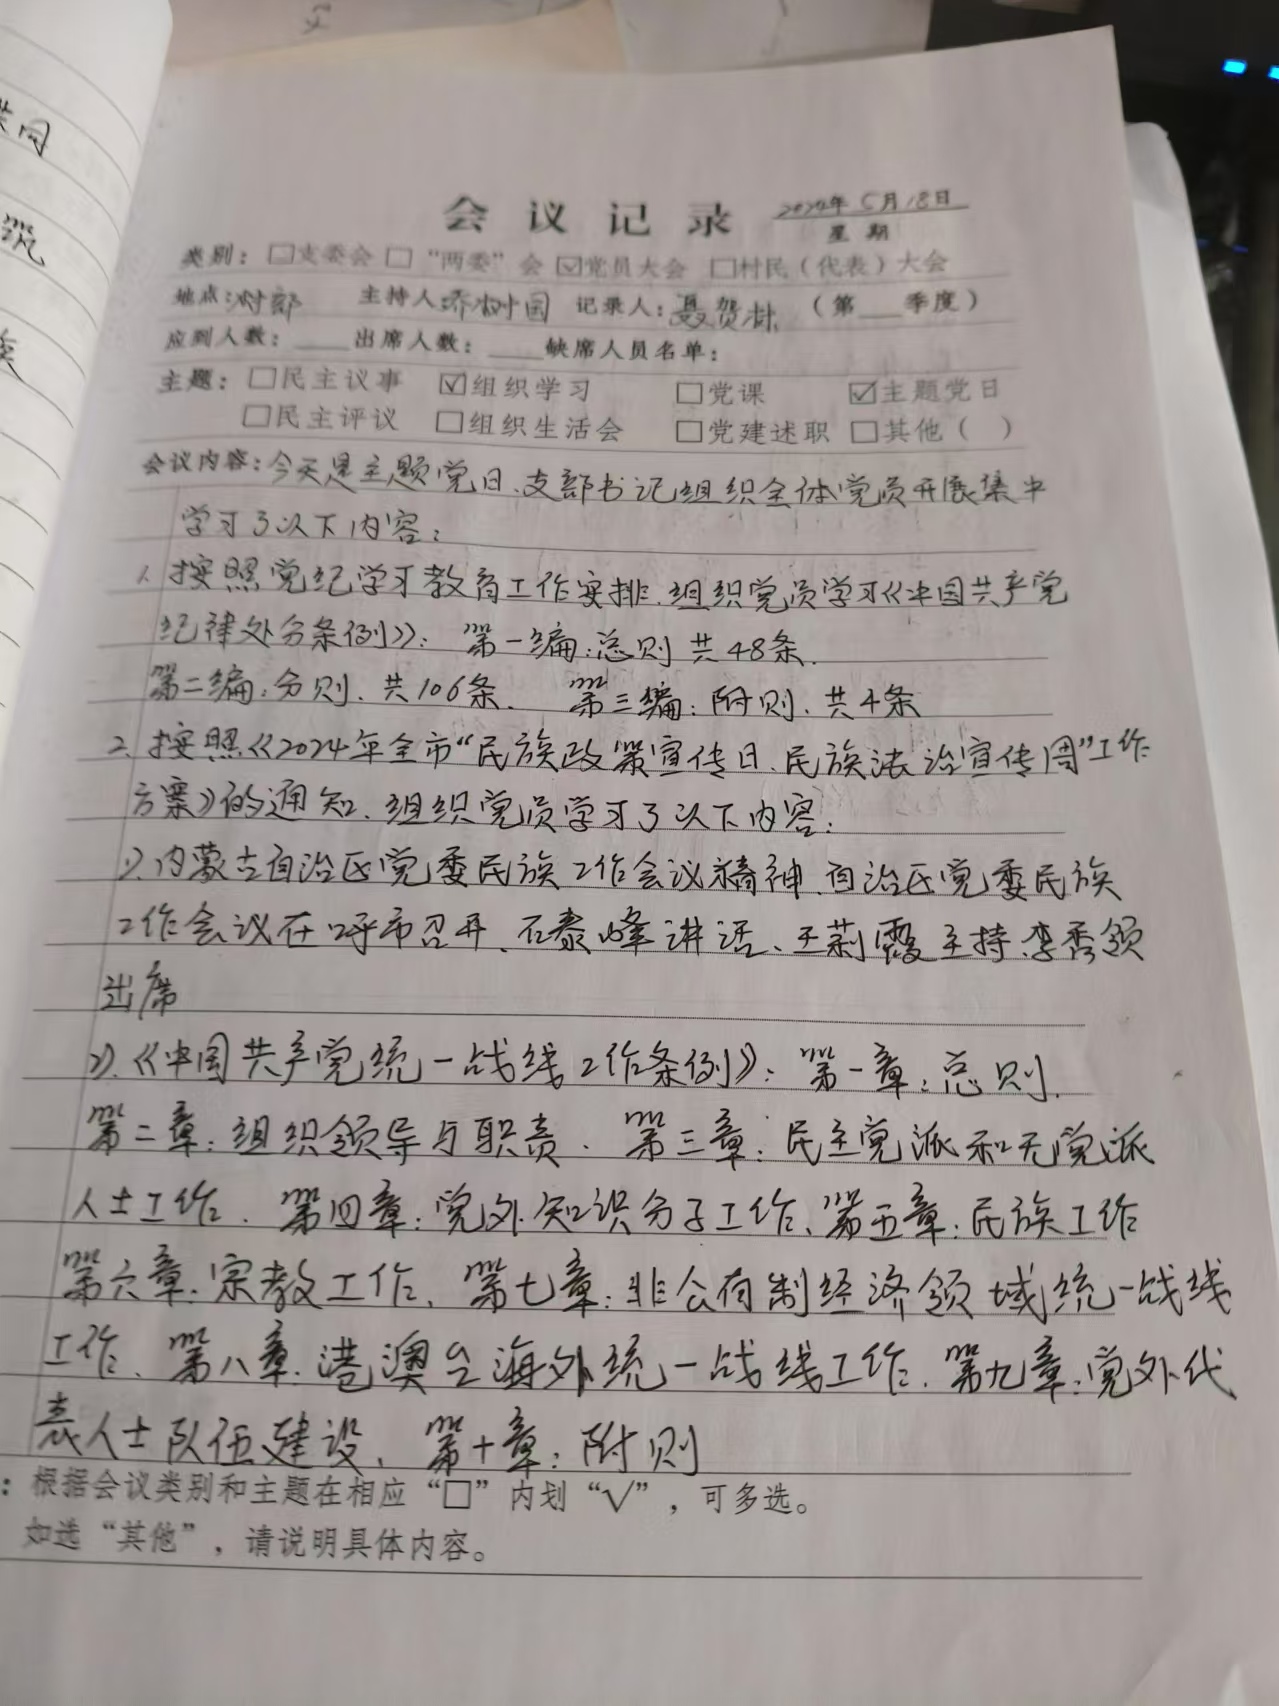 会 议 记 录 2024年5月18日
星 期
类别：□支委会 □“两委”会 ☑党员大会 □村民（代表）大会
地点：村部 主持人：乔树园 记录人：聂贺林 （第___季度）
应到人数：____出席人数：____缺席人员名单：
主题：□民主议事 ☑组织学习 □党课 ☑主题党日
□民主评议 □组织生活会 □党建述职 □其他（ ）
会议内容：今天是主题党日、支部书记组织全体党员开展集中
学习了以下内容：
1、按照党纪学习教育工作安排、组织党员学习《中国共产党
纪律处分条例》：第一编：总则 共48条.
第二编：分则、共106条、第三编：附则、共4条
2、按照《2024年全市“民族政策宣传日、民族法治宣传周”工作
方案》的通知、组织党员学习了以下内容：
1）、内蒙古自治区党委民族工作会议精神、自治区党委民族
工作会议在呼市召开、石泰峰讲话、王莉霞主持、李秀领
出席
2）、《中国共产党统一战线工作条例》：第一章：总则、
第二章：组织领导与职责、第三章：民主党派和无党派
人士工作、第四章：党外知识分子工作、第五章：民族工作
第六章：宗教工作、第七章：非公有制经济领域统一战线
工作、第八章：港澳台海外统一战线工作、第九章：党外代
表人士队伍建设、第十章：附则
：根据会议类别和主题在相应“□”内划“√”，可多选。
如选“其他”，请说明具体内容。